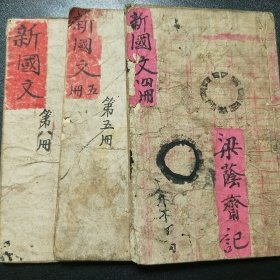 新國文
第八冊
新國文
五冊
第五冊
新國文四冊
梁蔭齋記